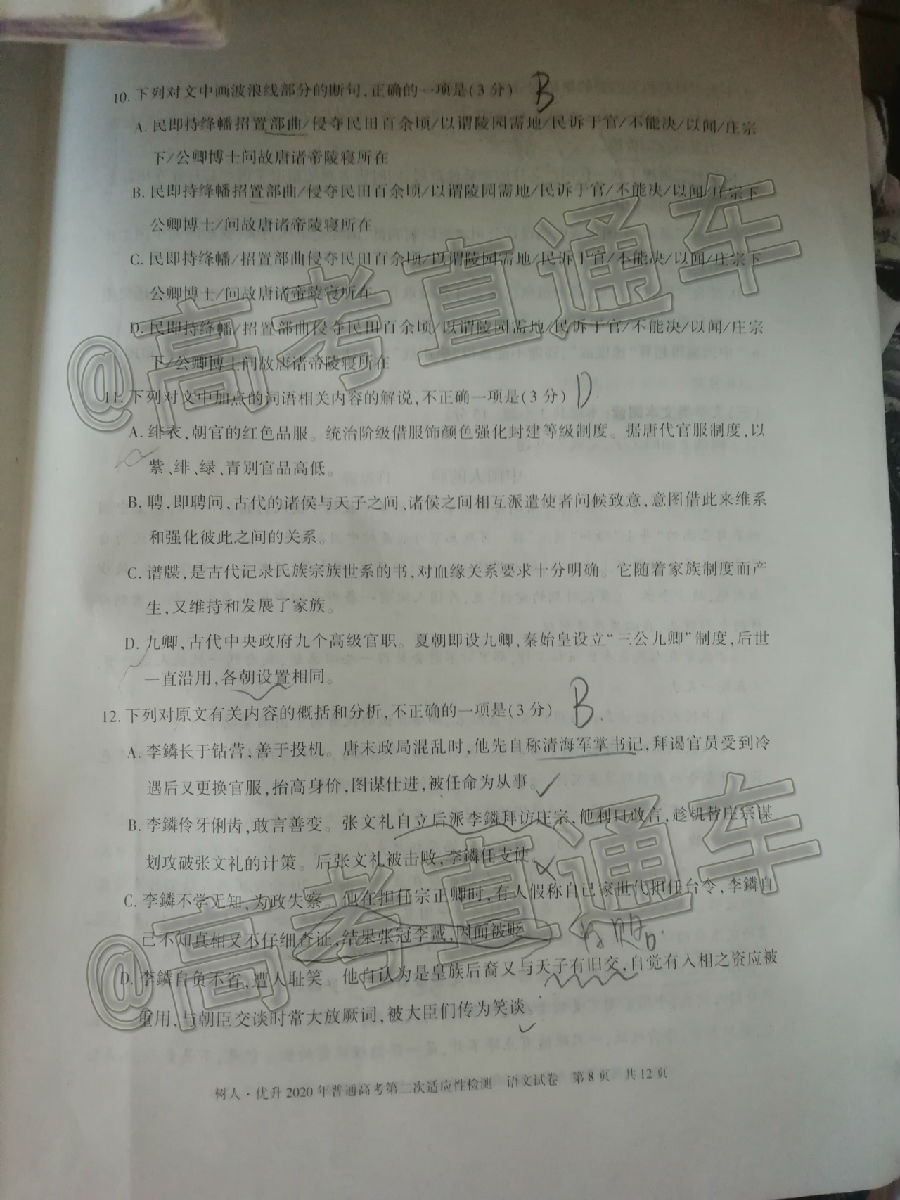 10. 下列对文中画波浪线部分的断句,正确的一项是(3分) B
A. 民即持绛幡招置部曲/侵夺民田百余顷/以谓陵园需地/民诉于官/不能决/以闻/庄宗
下/公卿博士问故唐诸帝陵寝所在
B. 民即持绛幡招置部曲/侵夺民田百余顷/以谓陵园需地/民诉于官/不能决/以闻/庄宗下
公卿博士/问故唐诸帝陵寝所在
C. 民即持绛幡/招置部曲侵夺民田百余顷/以谓陵园需地/民诉于官/不能决/以闻/庄宗下
公卿博士/问故唐诸帝陵寝所在
D. 民即持绛幡/招置部曲侵夺民田百余顷/以谓陵园需地/民诉于官/不能决/以闻/庄宗
下/公卿博士问故唐诸帝陵寝所在
11. 下列对文中加点的词语相关内容的解说,不正确一项是(3分) D
A. 绯衣,朝官的红色品服。统治阶级借服饰颜色强化封建等级制度。据唐代官服制度,以
紫、绯、绿、青别官品高低。
B. 聘,即聘问,古代的诸侯与天子之间,诸侯之间相互派遣使者问候致意,意图借此来维系
和强化彼此之间的关系。
C. 谱牒,是古代记录氏族宗族世系的书,对血缘关系要求十分明确。它随着家族制度而产
生,又维持和发展了家族。
D. 九卿,古代中央政府九个高级官职。夏朝即设九卿,秦始皇设立“三公九卿”制度,后世
一直沿用,各朝设置相同。
12. 下列对原文有关内容的概括和分析,不正确的一项是(3分) B
A. 李鏻长于钻营,善于投机。唐末政局混乱时,他先自称清海军掌书记,拜谒官员受到冷
遇后又更换官服,抬高身价,图谋仕进,被任命为从事。
B. 李鏻伶牙俐齿,敢言善变。张文礼自立后派李鏻拜访庄宗,他利口改言,趁机替庄宗谋
划攻破张文礼的计策。后张文礼被击败,李鏻任支使
C. 李鏻不学无知,为政失察。他在担任宗正卿时,有人假称自己家世代担任台令,李鏻自
己不知真相又不仔细查证,结果张冠李戴,因而被贬
D. 李鏻自负不省,遭人耻笑。他自认为是皇族后裔又与天子有旧交,自觉有入相之资应被
重用,与朝臣交谈时常大放厥词,被大臣们传为笑谈
树人·优升2020年普通高考第二次适应性检测 语文试卷 第8页 共12页
@高考直通车
@高考直通车